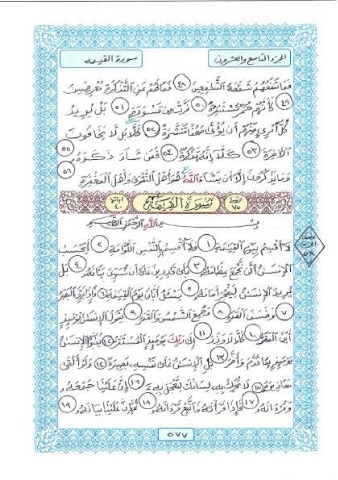 الجزء التاسع والعشرون
سورة القيمة
فما تنفعهم شفعة الشفعين ٤٨ فما لهم عن التذكرة معرضين
٤٩ كأنهم حمر مستنفرة ٥٠ فرت من قسورة ٥١ بل يريد
كل امرئ منهم أن يؤتى صحفا منشرة ٥٢ كلا بل لا يخافون
الأخرة ٥٣ كلا إنه تذكرة ٥٤ فمن شاء ذكره ٥٥
وما يذكرون إلا أن يشاء الله هو أهل التقوى وأهل المغفرة ٥٦
سورة القيمة
بسم الله الرحمن الرحيم
لا أقسم بيوم القيمة ١ ولا أقسم بالنفس اللوامة ٢ أيحسب
الإنسن ألن نجمع عظامه ٣ بلى قدرين على أن نسوي بنانه ٤ بل
يريد الإنسن ليفجر أمامه ٥ يسئل أيان يوم القيمة ٦ فإذا برق البصر
٧ وخسف القمر ٨ وجمع الشمس والقمر ٩ يقول الإنسن يومئذ
أين المفر ١٠ كلا لا وزر ١١ إلى ربك يومئذ المستقر ١٢ ينبؤا الإنسن
يومئذ بما قدم وأخر ١٣ بل الإنسن على نفسه بصيرة ١٤ ولو ألقى
معاذيره ١٥ لا تحرك به لسانك لتعجل به ١٦ إن علينا جمعه
وقرءانه ١٧ فإذا قرأنه فاتبع قرءانه ١٨ ثم إن علينا بيانه ١٩
٥٧٧